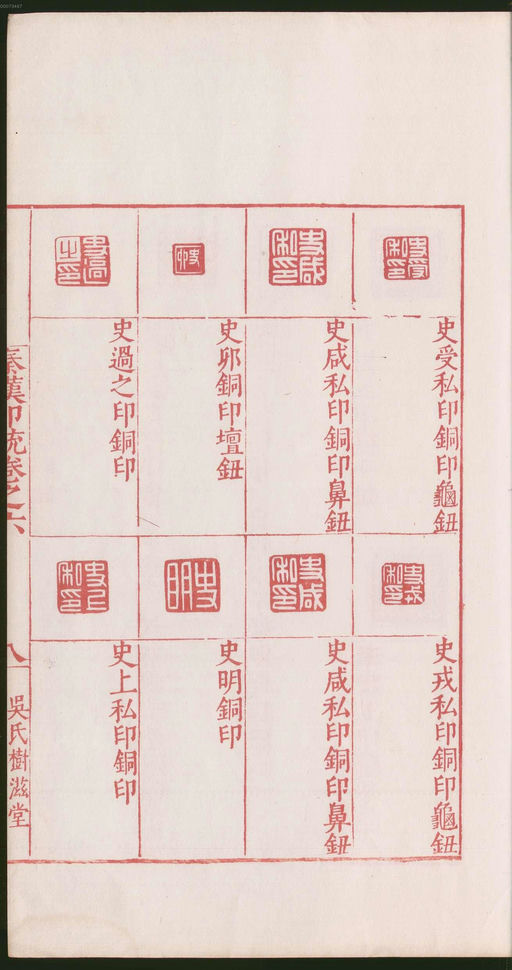 史受私印銅印龜鈕
史戎私印銅印龜鈕
史咸私印銅印鼻鈕
史咸私印銅印鼻鈕
史卯銅印壇鈕
史明銅印
史過之印銅印
史上私印銅印
秦漢印統卷之六
八
吳氏樹滋堂